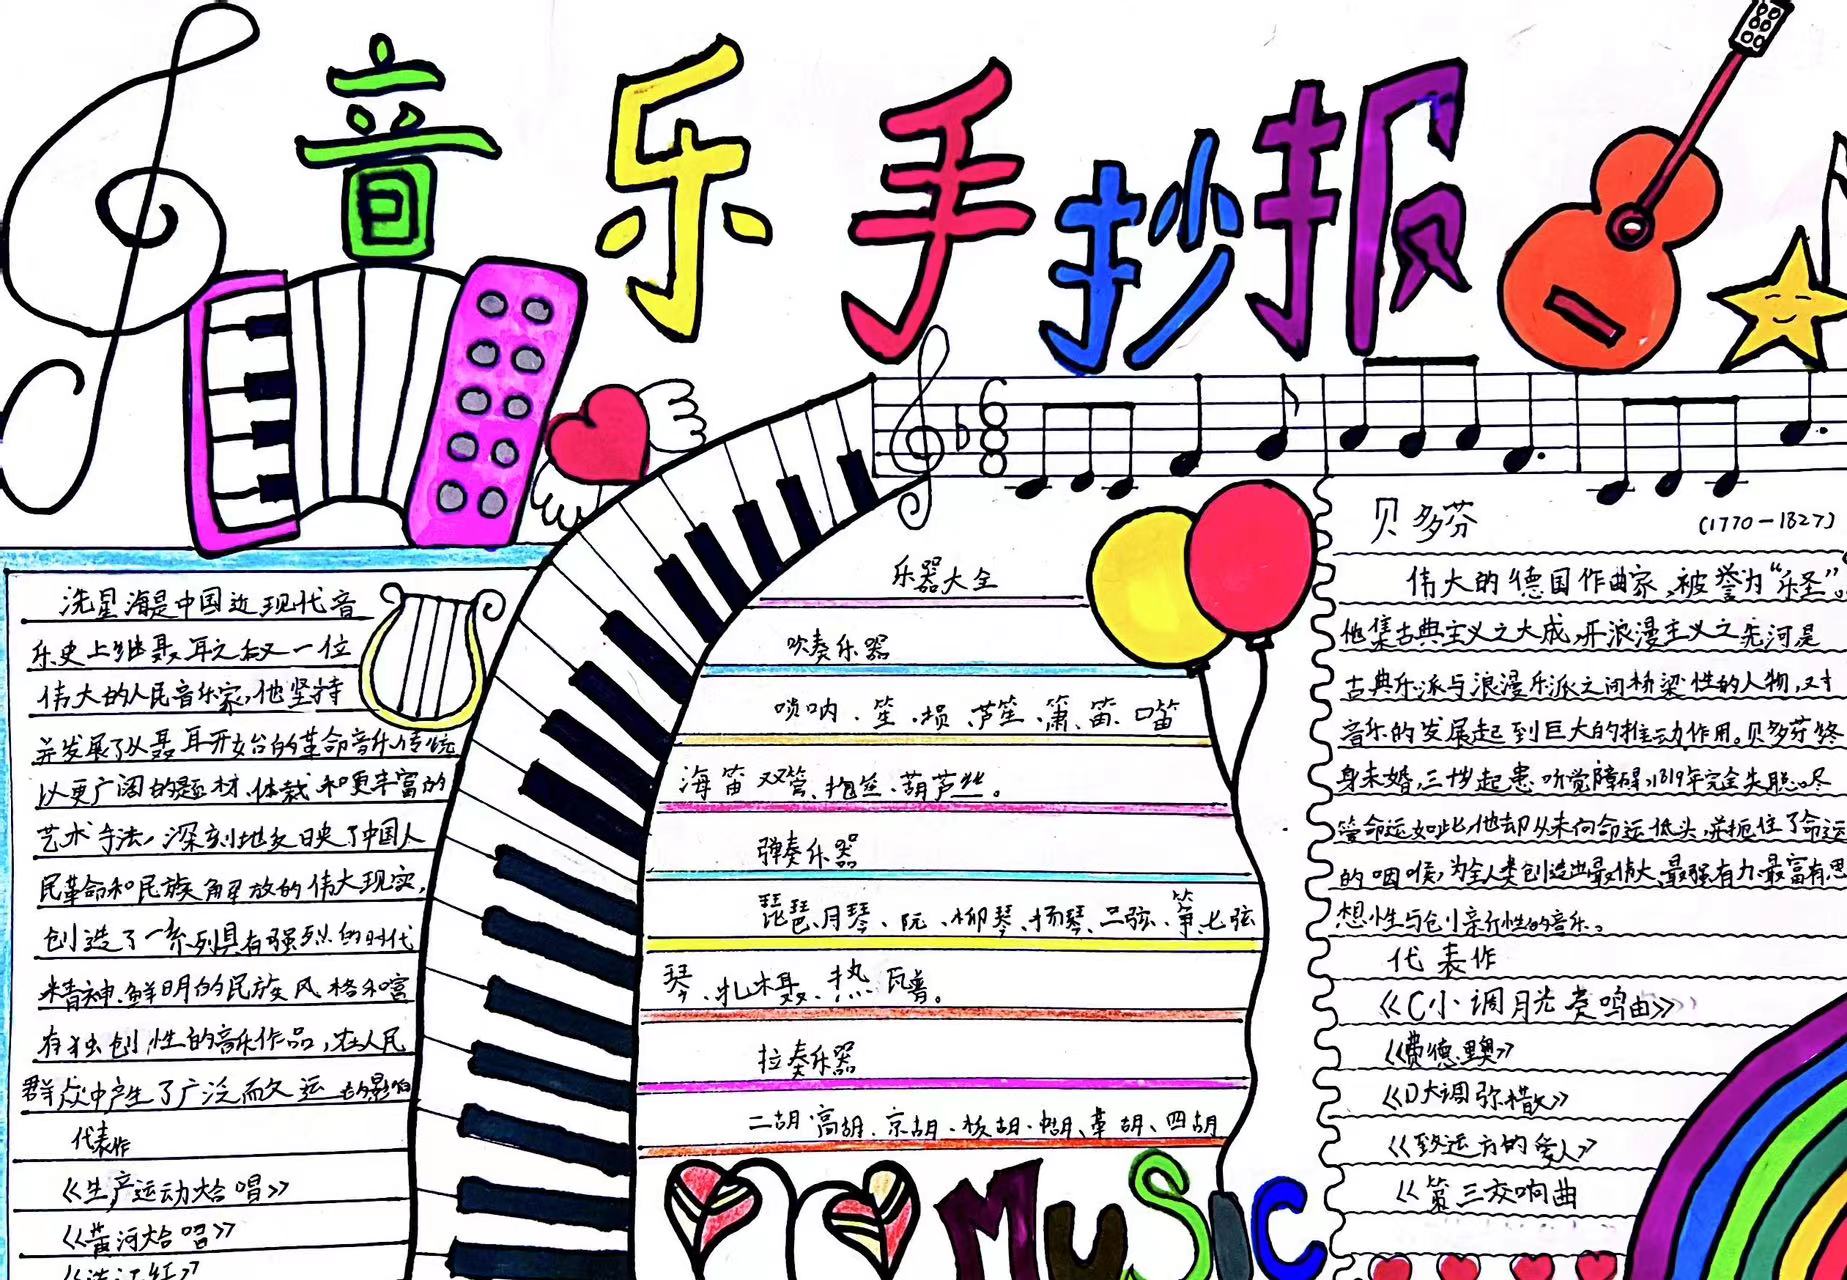 音乐手抄报
冼星海是中国近现代音
乐史上继聂耳之后又一位
伟大的人民音乐家,他坚持
并发展了从聂耳开始的革命音乐传统
以更广阔的题材、体裁和更丰富的
艺术手法,深刻地反映了中国人
民革命和民族解放的伟大现实,
创造了一系列具有强烈的时代
精神、鲜明的民族风格和富
有独创性的音乐作品,在人民
群众中产生了广泛而久远的影响
代表作
《生产运动大合唱》
《黄河大合唱》
乐器大全
吹奏乐器
唢呐、笙、埙、芦笙、箫、笛、口笛
海笛、双管、抱笙、葫芦丝。
弹奏乐器
琵琶、月琴、阮、柳琴、扬琴、三弦、筝、七弦
琴、扎木聂、热瓦普。
拉奏乐器
二胡、高胡、京胡、板胡、中胡、革胡、四胡
Music
6
8
贝多芬
(1770-1827)
伟大的德国作曲家,被誉为“乐圣”。
他集古典主义之大成,开浪漫主义之先河是
古典乐派与浪漫乐派之间桥梁性的人物,对
音乐的发展起到巨大的推动作用。贝多芬终
身未婚,三十岁起患听觉障碍,1819年完全失聪。尽
管命运如此,他却从未向命运低头,并扼住了命运
的咽喉,为全人类创造出最伟大、最强有力、最富有思
想性与创新性的音乐。
代表作
《C小调月光奏鸣曲》
《费德里奥》
《D大调弥撒》
《致远方的爱人》
《第三交响曲